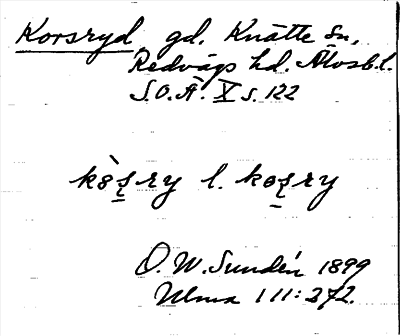 Korsryd gd. Knätte sn,
Redvägs hd. Älvsb. l.
S.O.Ä. X s. 122
kò̀s̠ry l. kos̠ry
O. W. Sundén 1899
Ulma 111:272.